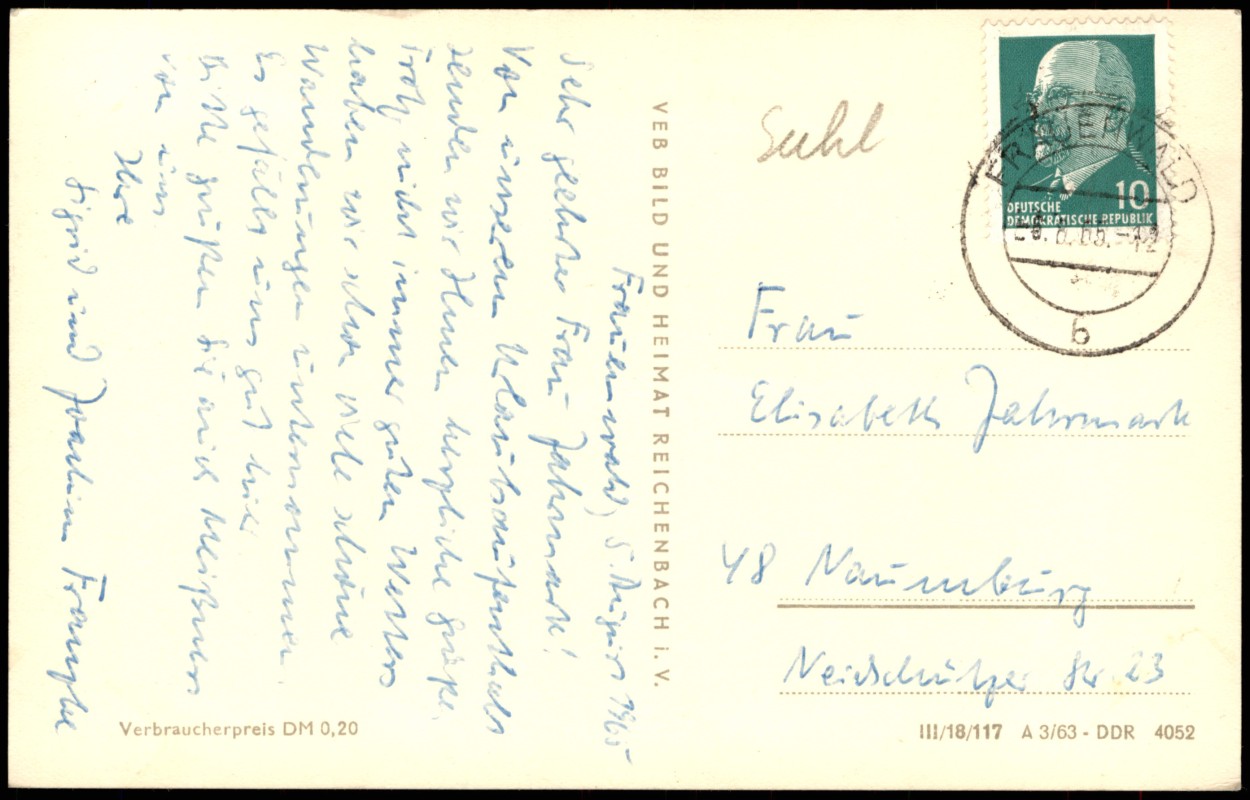 Frauenwald, 5. August 1965
Sehr geehrte Frau Jahrmark!
Von unserem Urlaubsaufenthalt
senden wir Ihnen herzliche Grüße.
Trotz nicht immer guten Wetters
haben wir schon viele schöne
Wanderungen unternommen.
Es gefällt uns gut hier.
Bitte grüßen Sie auch Meißners
von uns
Ihre
Sigrid und Joachim
VEB BILD UND HEIMAT REICHENBACH i. V.
Suhl
10
DEUTSCHE
DEMOKRATISCHE REPUBLIK
FRAUENWALD
b
Frau
Elisabeth Jahrmark
48 Naumburg
Neidschützer Str. 23
Verbraucherpreis DM 0,20
III/18/117 A 3/63 - DDR 4052